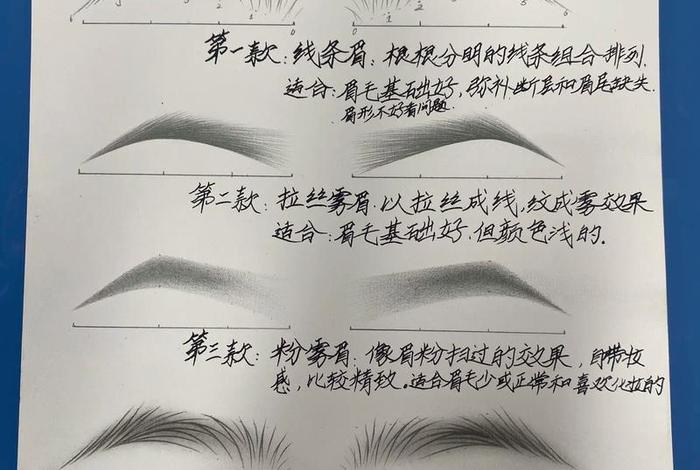 第一款：线条眉：根根分明的线条组合排列.
适合：眉毛基础好，弥补.断层和眉尾缺失.
眉形不好看问题.
第二款：拉丝雾眉.以拉丝成线.纹成雾效果
适合：眉毛基础好.但颜色浅的.
第三款：粉雾眉：像眉粉扫过的效果，自带妆
感，比较精致.适合眉毛少或正常和喜欢化妆的